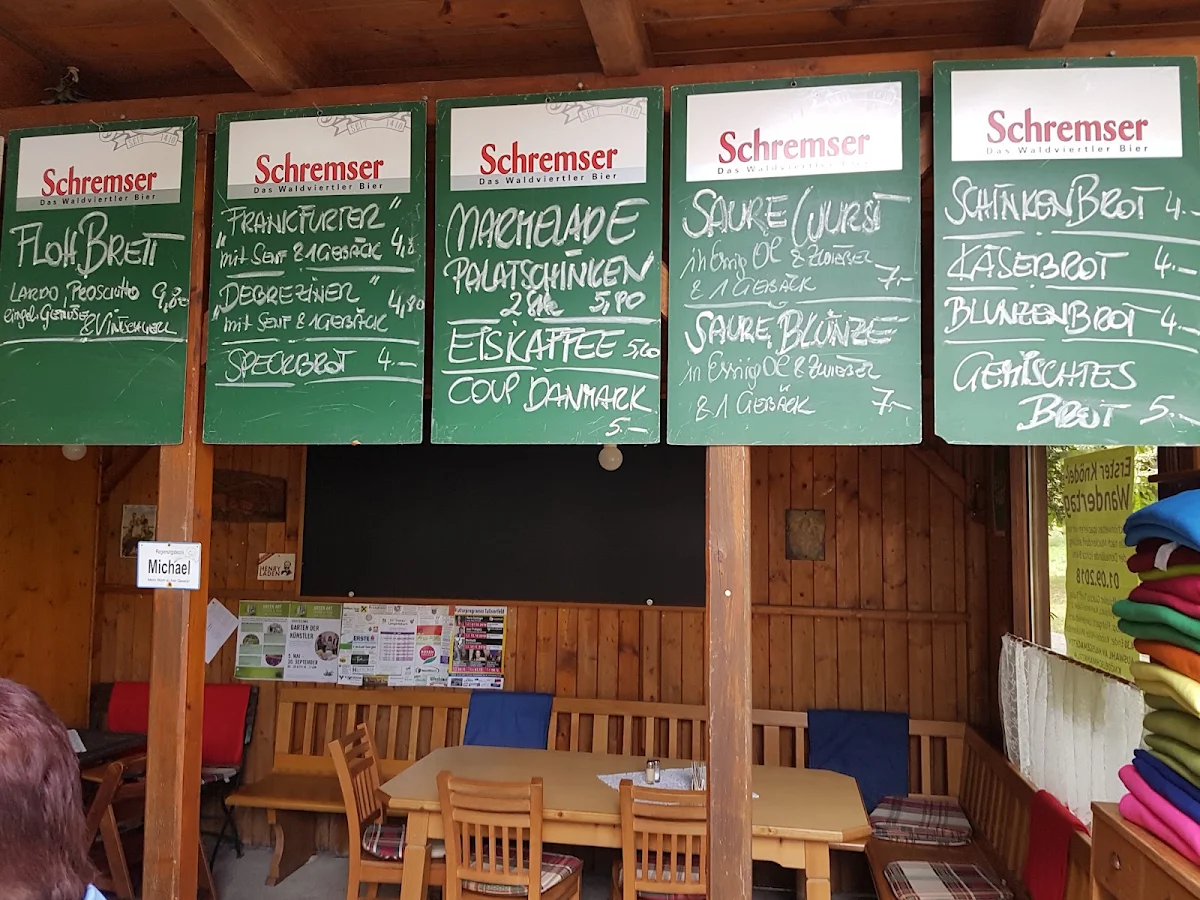 SEIT 1410
Schremser
Das Waldviertler Bier
FLOH BRETT
LARDO, PROSCIUTTO
eingel. GEMÜSE
& VINSCHGERL
SEIT 1410
Schremser
Das Waldviertler Bier
"FRANKFURTER"
mit SENF & 1 GEBÄCK
"DEBREZINER" 4,80
mit SENF & 1 GEBÄCK
SPECKBROT 4.—
SEIT 1410
Schremser
Das Waldviertler Bier
MARMELADE
PALATSCHINKEN
2 Stk 5,80
EISKAFFEE
COUP DANMARK
5.—
Schremser
Das Waldviertler Bier
SAURE WURST
in Essig Öl & ZWIEBEL
& 1 GEBÄCK 7.—
SAURE BLUNZE
in Essig Öl & ZWIEBEL
& 1 GEBÄCK 7.—
Schremser
Das Waldviertler Bier
SCHINKENBROT 4.
KÄSEBROT 4.—
BLUNZENBROT 4.—
GEMISCHTES
BROT 5.—
Michael
HENRY
LADEN
GARTEN DER
KÜNSTLER
Erster Knödel-
Wandertag
01.09.2018